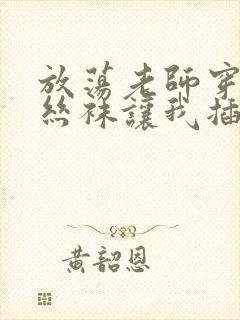 放蕩老師穿
絲袜讓我插
黃韶恩